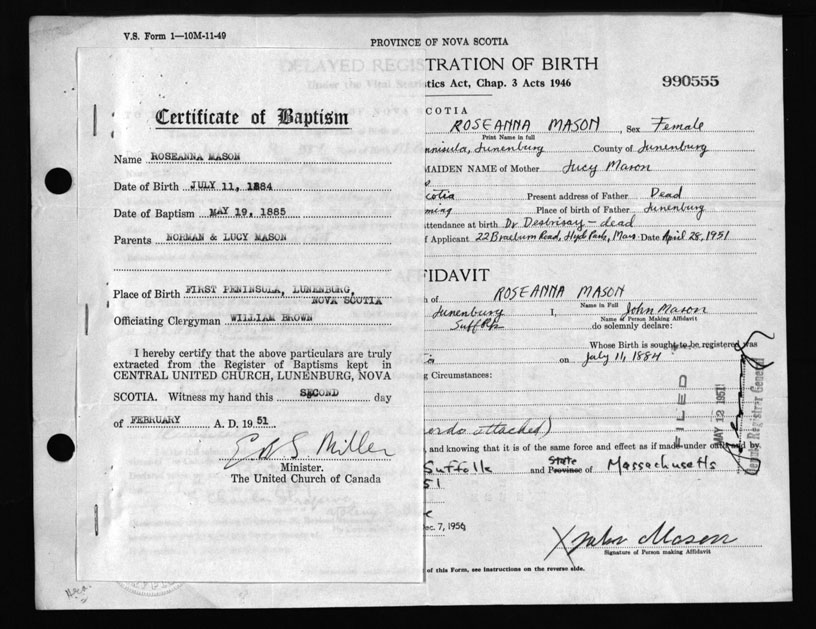 V.S. Form 1—10M-11-49
PROVINCE OF NOVA SCOTIA
DELAYED REGIS TRATION OF BIRTH
tics Act, Chap. 3 Acts 1946
990555
Certificate of Baptism
Name ROSEANNA MASON
Date of Birth JULY 11, 1884
Date of Baptism MAY 19, 1885
Parents NORMAN & LUCY MASON
Place of Birth FIRST PENINSULA, LUNENBURG,
NOVA SCOTIA
Officiating Clergyman WILLIAM BROWN
I hereby certify that the above particulars are truly
extracted from the Register of Baptisms kept in
CENTRAL UNITED CHURCH, LUNENBURG, NOVA
SCOTIA. Witness my hand this SECOND day
of FEBRUARY A. D. 1951.
Miller
Minister.
The United Church of Canada
COTIA
ROSEANNA MASON, Sex Female
Print Name in full
ninsula, Lunenburg County of Lunenburg
MAIDEN NAME of Mother Lucy Mason
cotia Present address of Father Dead
ming Place of birth of Father Lunenburg
ttendance at birth Dr Desbrisay — dead
f Applicant 22 Braeburn Road, Hyde Park, Mass. Date April 28, 1951
FIDAVIT
h of ROSEANNA MASON
Name in Full
Lunenburg I, John Mason
Name of Person Making Affidavit
Suffolk do solemnly declare:
Whose Birth is sought to be registered was
on July 11, 1884
g Circumstances:
FILED
MAY 12 1951
Deputy Registrar General
ords attached)
, and knowing that it is of the same force and effect as if made under oath and by
Suffolk and State Province of Massachusetts
51
ec. 7, 1956
X John Mason
Signature of Person making Affidavit
of this Form, see instructions on the reverse side.